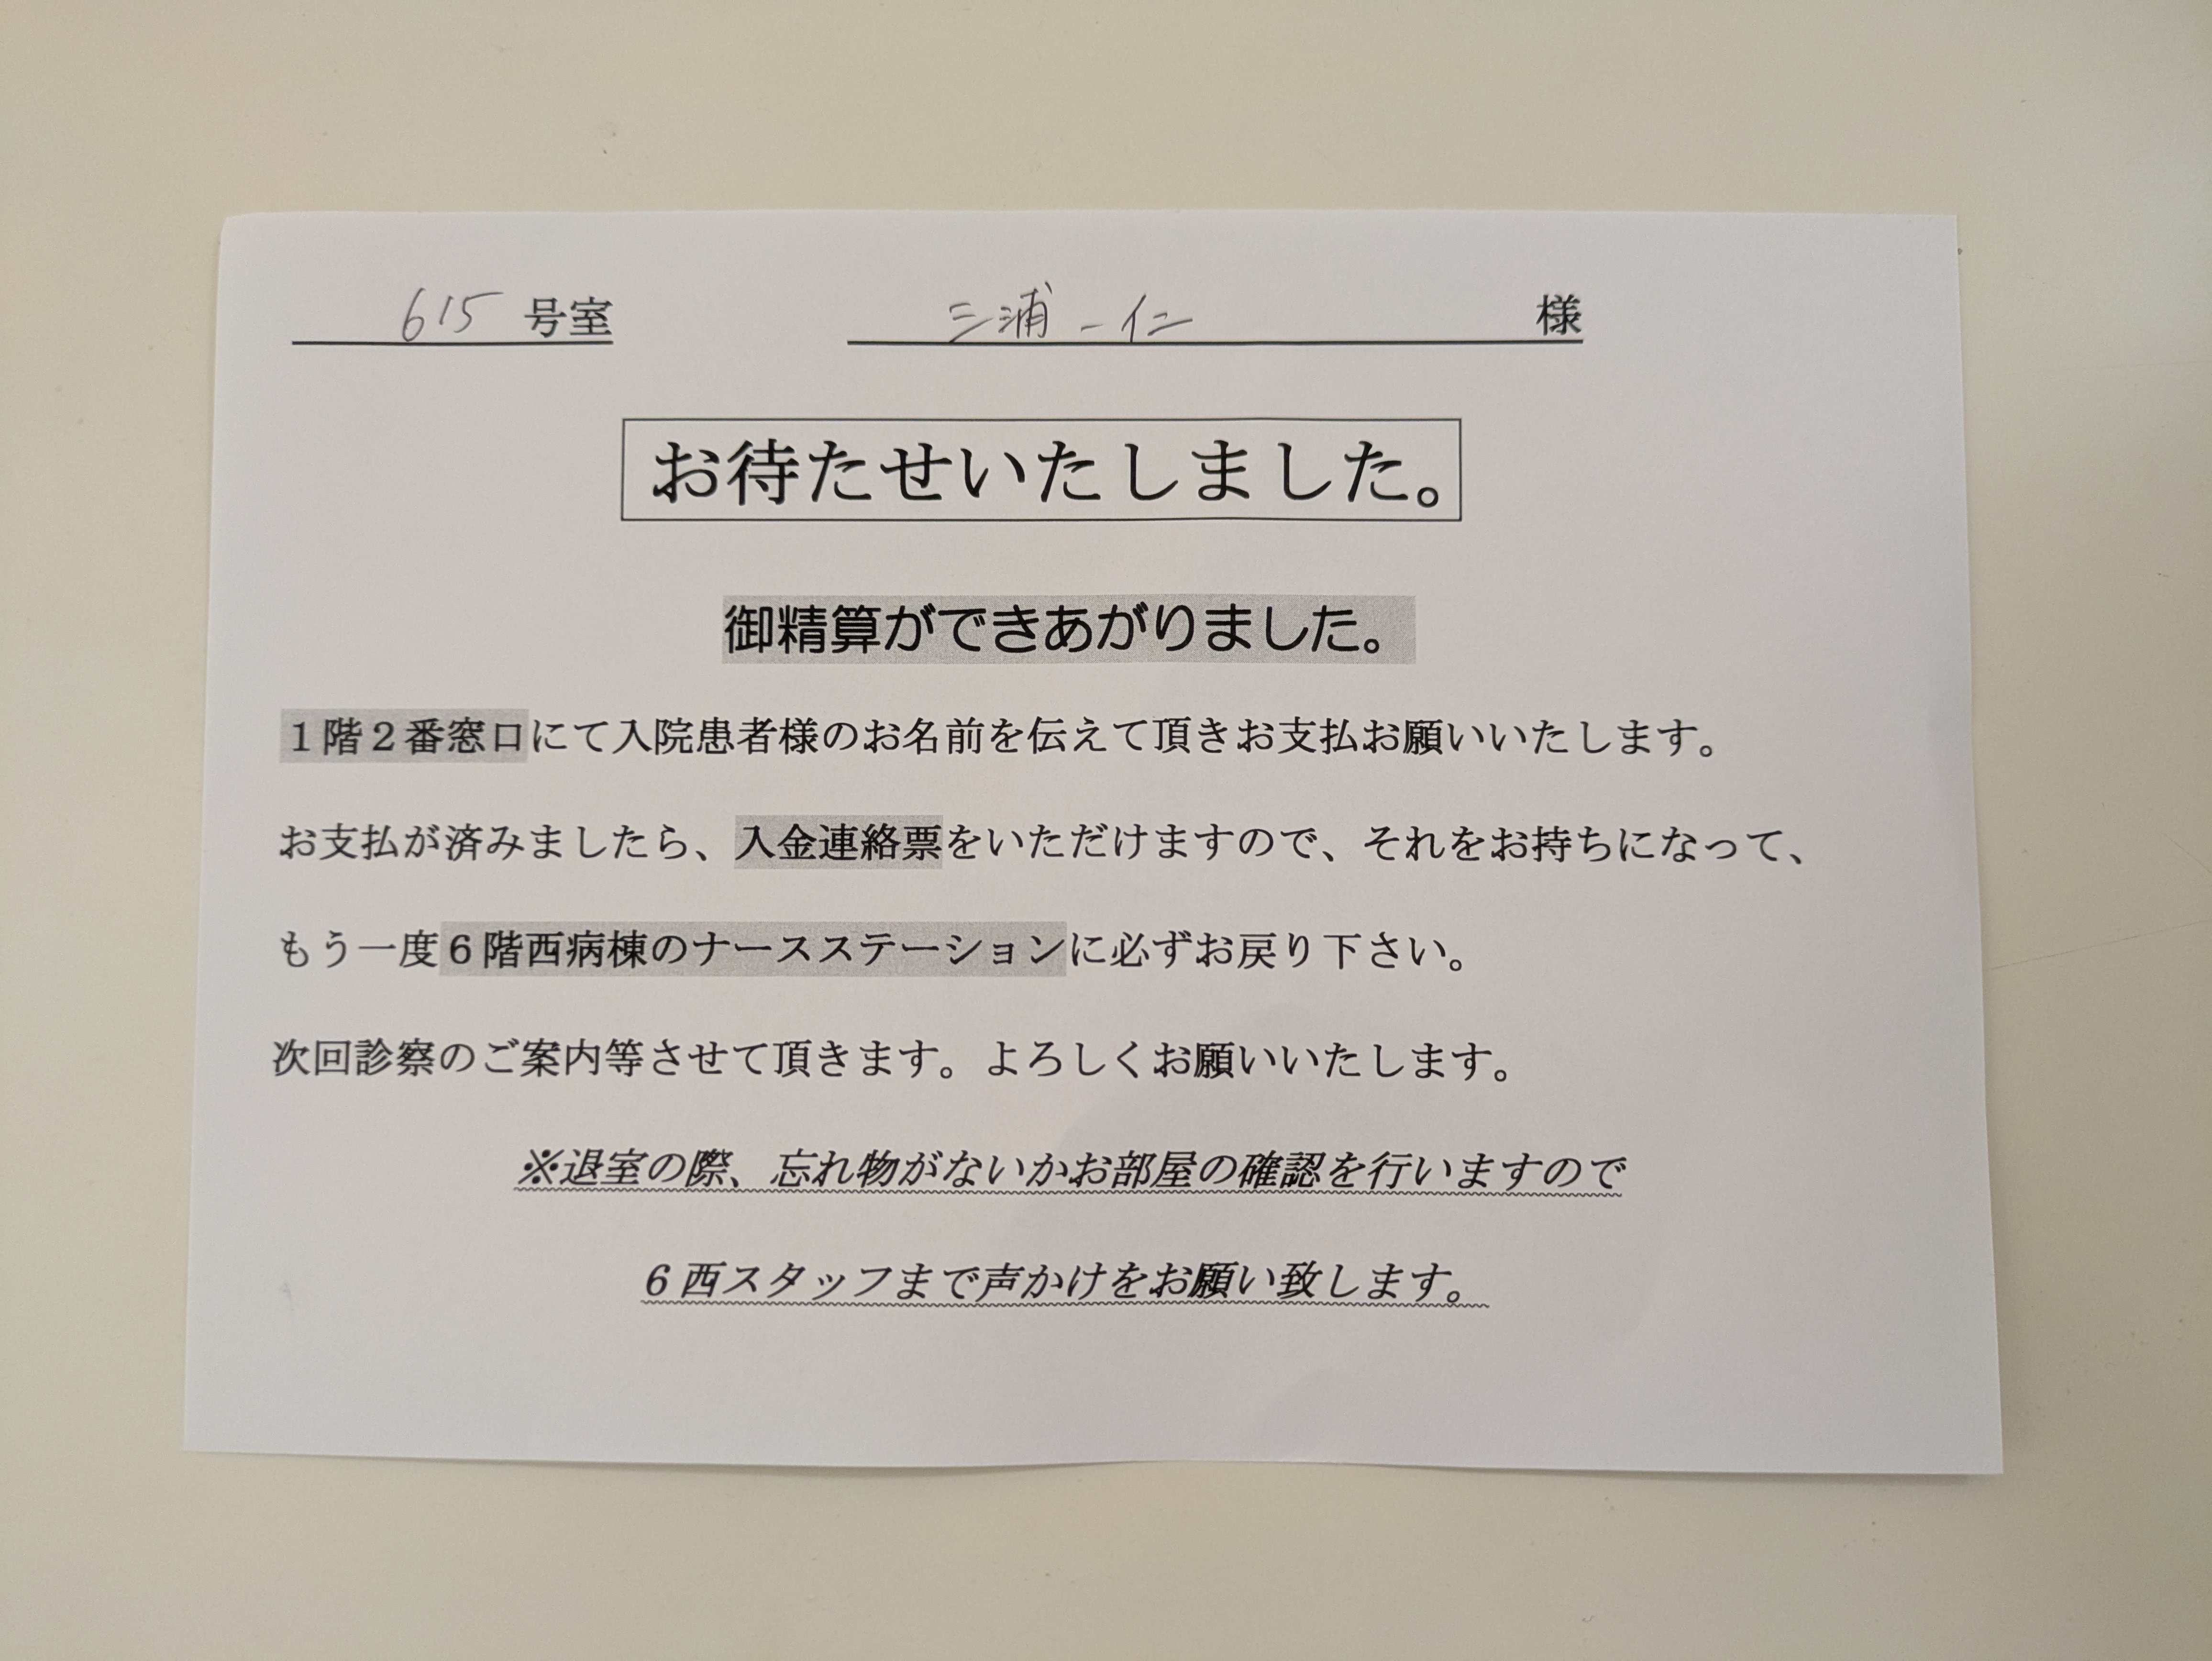 615 号室 三浦 一仁 様
お待たせいたしました。
御精算ができあがりました。
１階２番窓口にて入院患者様のお名前を伝えて頂きお支払お願いいたします。
お支払が済みましたら、入金連絡票をいただけますので、それをお持ちになって、
もう一度６階西病棟のナースステーションに必ずお戻り下さい。
次回診察のご案内等させて頂きます。よろしくお願いいたします。
※退室の際、忘れ物がないかお部屋の確認を行いますので
６西スタッフまで声かけをお願い致します。